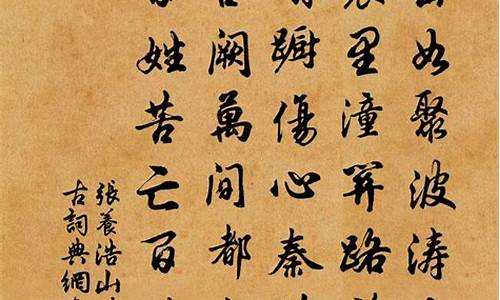 如聚波濤
里潼關路
躕傷心秦
闕萬間都
姓苦亡百
張養浩山
古詞典網